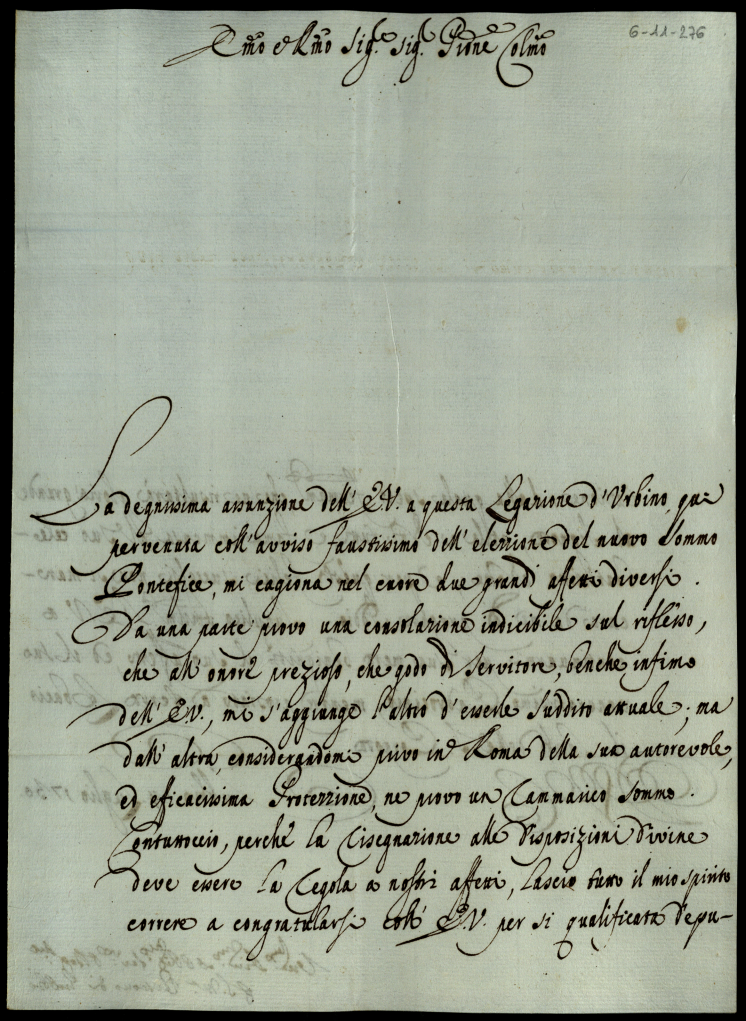 6-11-276
Emo e Rmo Sigre Sigr Pione Colmo
La degnissima assunzione dell' E.V. a questa Legazione d'Urbino, qua
pervenuta coll' avviso faustissimo dell' elezzione del nuovo Sommo
Pontefice, mi cagiona nel cuore due grandi affetti diversi.
Da una parte provo una consolazione indicibile sul riflesso,
che all' onore prezioso, che godo di Servitore, benche infimo
dell' E.V., mi s'aggiunge l'altro d'esserle suddito attuale; ma
dall' altra, considerandomi privo in Roma della sua autorevole,
ed efficacissima Protezzione, ne provo un Rammarico sommo.
Contuttociò, perchè la Risegnazione alle Disposizioni Divine
deve essere la Regola a nostri affetti, lascio tutto il mio spirito
correre a congratularsi coll' E.V. per si qualificata Depu-